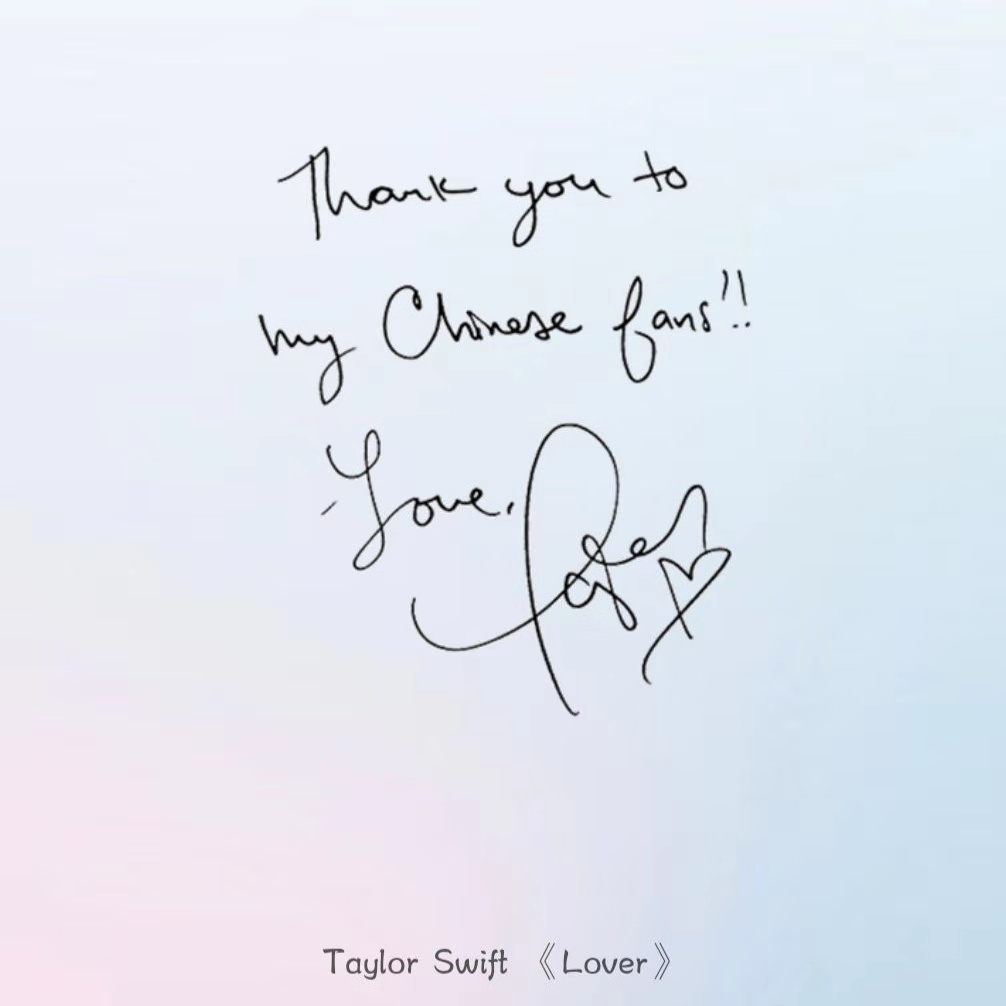 Thank you to
my Chinese fans!!
Love,
Taylor Swift 《Lover》